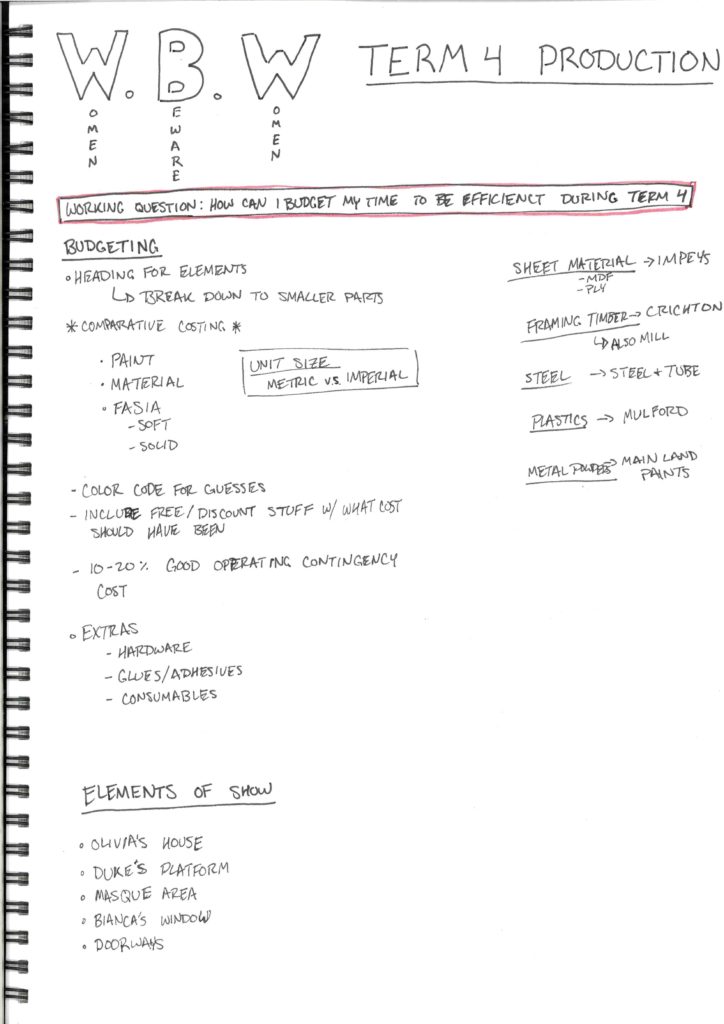 W.B.W TERM 4 PRODUCTION
WOMEN BEWARE WOMEN
WORKING QUESTION: HOW CAN I BUDGET MY TIME TO BE EFFICIENCT DURING TERM 4
BUDGETING
• HEADING FOR ELEMENTS
↳ BREAK DOWN TO SMALLER PARTS
* COMPARATIVE COSTING *
• PAINT
• MATERIAL
• FASIA
- SOFT
- SOLID
UNIT SIZE
METRIC V.S. IMPERIAL
- COLOR CODE FOR GUESSES
- INCLUDE FREE/DISCOUNT STUFF W/ WHAT COST
SHOULD HAVE BEEN
- 10-20% GOOD OPERATING CONTINGENCY
COST
• EXTRAS
- HARDWARE
- GLUES/ADHESIVES
- CONSUMABLES
SHEET MATERIAL → IMPEYS
- MDF
- PLY
FRAMING TIMBER → CRICHTON
↳ ALSO MILL
STEEL → STEEL + TUBE
PLASTICS → MULFORD
METAL POWDERS → MAIN LAND
PAINTS
ELEMENTS OF SHOW
• OLIVIA'S HOUSE
• DUKE'S PLATFORM
• MASQUE AREA
• BIANCA'S WINDOW
• DOORWAYS